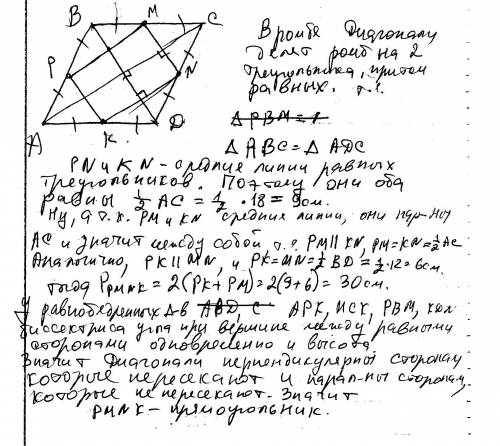 В ромбе Диагонали
делят ромб на 2
треугольника, притом
равных. т.е.
△ABC = △ADC
PN и KN - средние линии равных
треугольников. Поэтому они оба
равны ½ AC = ½ · 18 = 9см.
Ну, а т.к. PM и KN средние линии, они пар-ны
AC и значит между собой, т.е. PM∥KN, PM=KN=½AC
Аналогично, PK∥MN, и PK=MN=½BD=½·12=6см.
тогда PPMNK = 2(PK+PM)=2(9+6)=30см.
У равнобедренных △-в APK, MCN, PBM,
биссектриса угла при вершине между равными
сторонами одновременно и высота.
Значит Диагонали перпендикулярны сторонам,
которые пересекают и парал-ны сторонам,
которые не пересекают. Значит
PMNK - прямоугольник.
B M C
P N
A K D